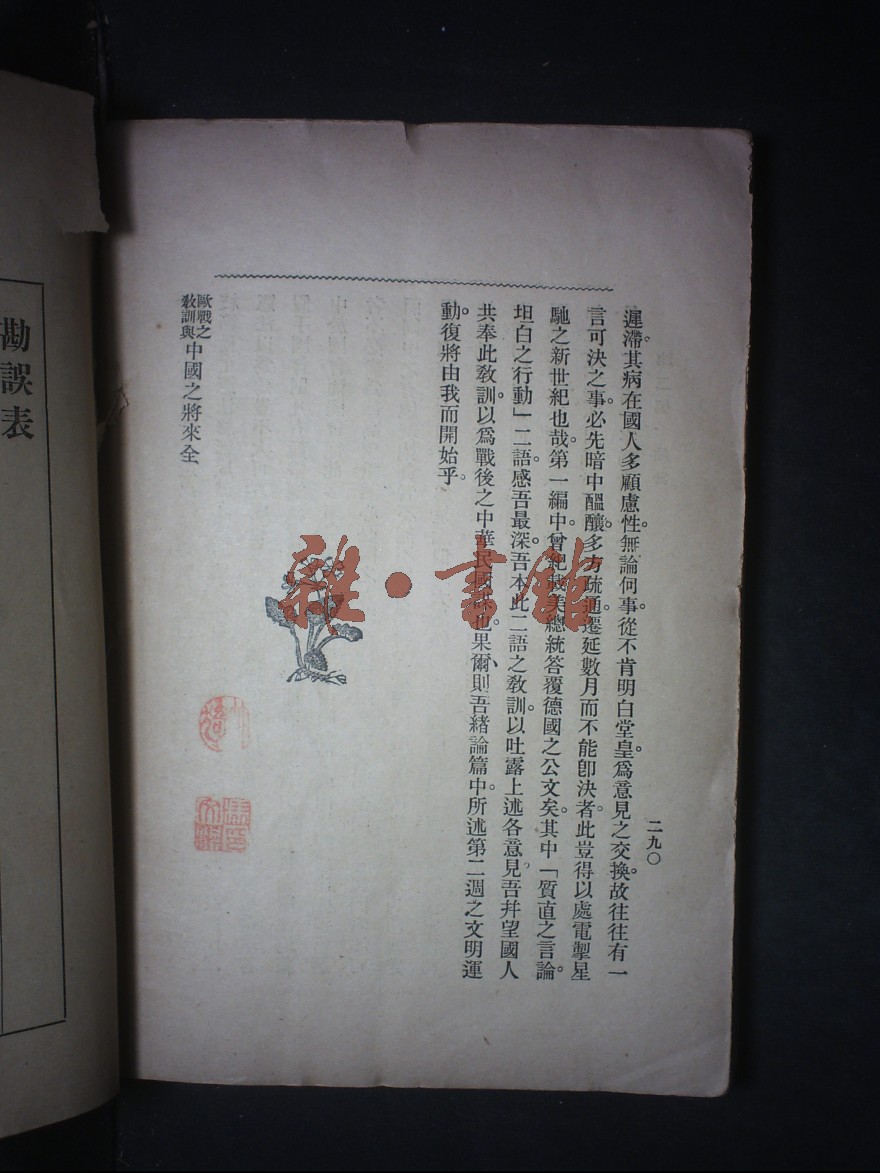 二九〇
遲滯。其病在國人多顧慮性。無論何事。從不肯明白堂皇。爲意見之交換。故往往有一
言可決之事。必先暗中醞釀。多方疏通。遷延數月而不能卽決者。此豈得以處電掣星
馳之新世紀也哉。第一編中。曾紀載美總統答覆德國之公文矣。其中「質直之言論。
坦白之行動」二語。感吾最深。吾本此二語之敎訓。以吐露上述各意見。吾幷望國人
共奉此敎訓。以爲戰後之中華民國謀也。果爾、則吾緖論篇中。所述第二週之文明運
動。復將由我而開始乎。
歐戰之敎訓與中國之將來全
勘誤表
雜·書館